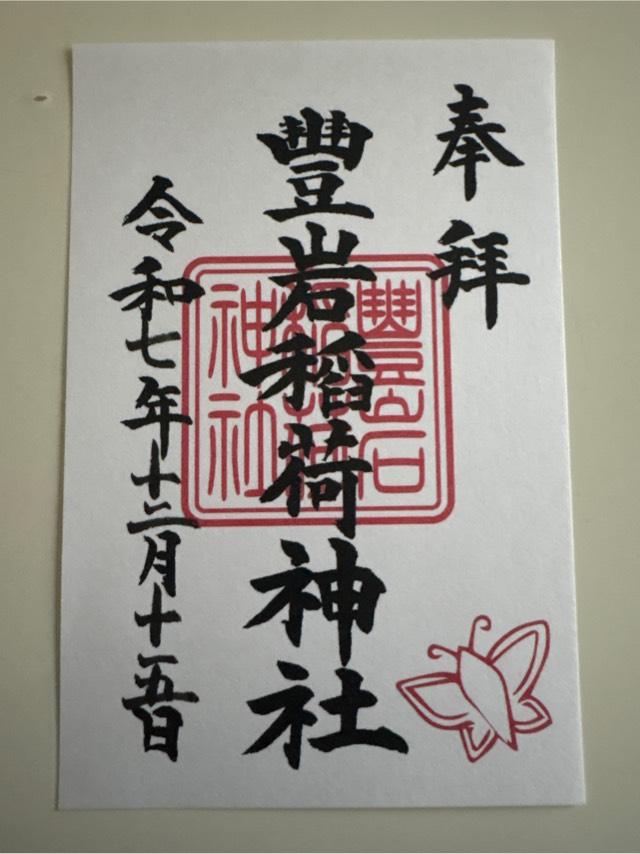 奉拝
豐岩稲荷神社
令和七年十二月十五日
豐岩
神社